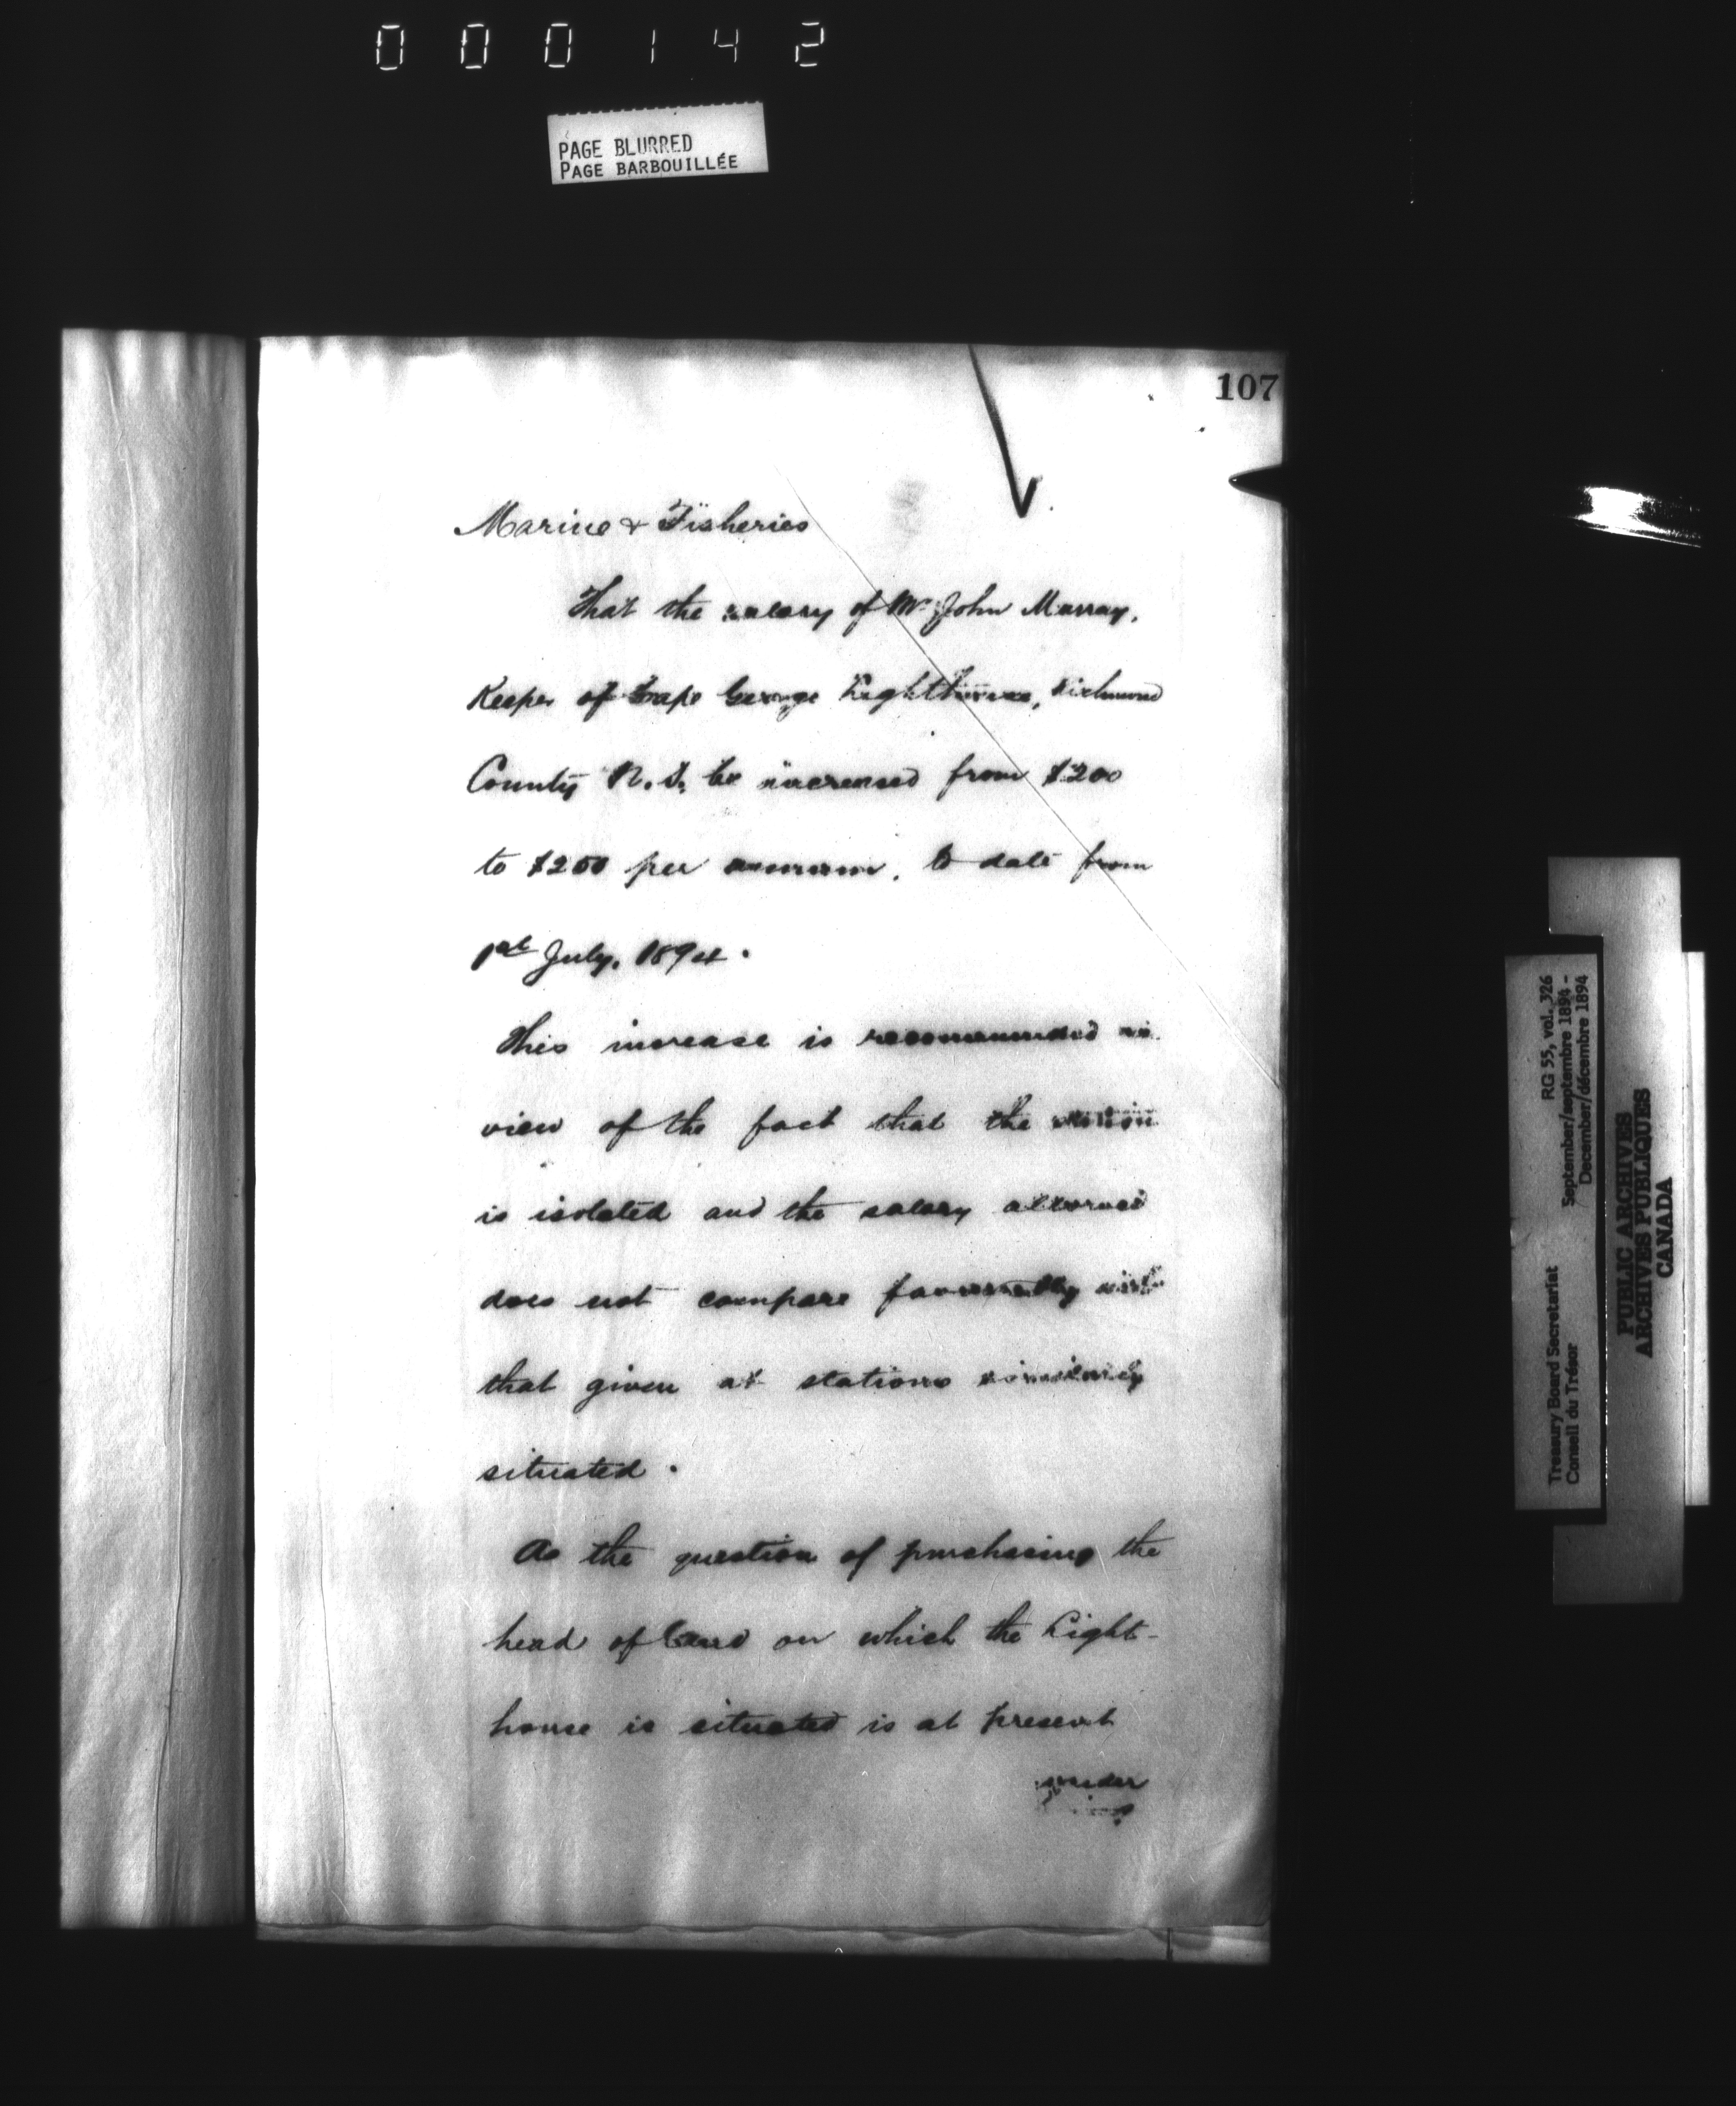 000142
PAGE BLURRED
PAGE BARBOUILLÉE
107
Marine & Fisheries
That the salary of Mr John Murray,
Keeper of Cape George Lighthouse, Richmond
County N.S. be increased from $200
to $250 per annum, to date from
1st July, 1894.
This increase is recommended in
view of the fact that the station
is isolated and the salary allowed
does not compare favourably with
that given at stations similarly
situated.
As the question of purchasing the
head of land on which the Light-
house is situated is at present
under
RG 55, vol. 326
September/septembre 1894 -
December/décembre 1894
Treasury Board Secretariat
Conseil du Trésor
PUBLIC ARCHIVES
ARCHIVES PUBLIQUES
CANADA